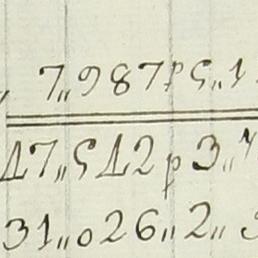 7„987p5„1
47„542p3„4
31„026„2„